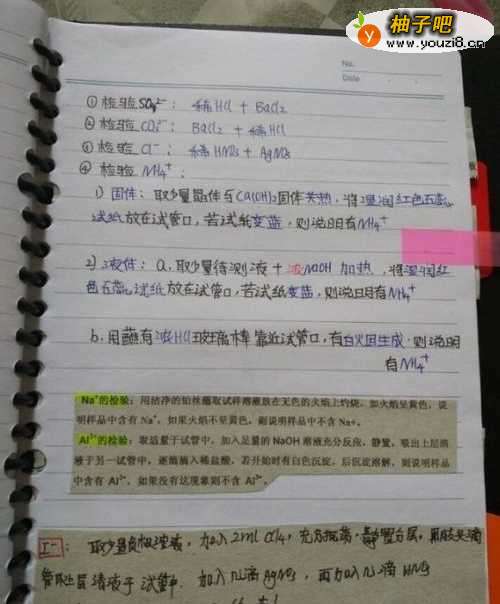 柚子吧
www.youzi8.cn
No.
Date
① 检验SO₄²⁻: 稀HCl + BaCl₂
② 检验CO₃²⁻: BaCl₂ + 稀HCl
③ 检验Cl⁻: 稀HNO₃ + AgNO₃
④ 检验NH₄⁺:
1) 固体: 取少量晶体与Ca(OH)₂固体共热, 将湿润红色石蕊
试纸放在试管口, 若试纸变蓝, 则说明有NH₄⁺
2) 液体: a. 取少量待测液 + 浓NaOH 加热, 将湿润红
色石蕊试纸放在试管口, 若试纸变蓝, 则说明有NH₄⁺
b. 用蘸有浓HCl玻璃棒靠近试管口, 有白烟生成, 则说明
有NH₄⁺
Na⁺的检验: 用洁净的铂丝蘸取试样溶液放在无色的火焰上灼烧, 如火焰呈黄色, 说
明样品中含有 Na⁺, 如果火焰不呈黄色, 则说明样品中不含 Na+。
Al³⁺的检验: 取适量于试管中, 加入足量的 NaOH 溶液充分反应, 静置, 吸出上层清
液于另一试管中, 逐滴滴入稀盐酸, 若开始时有白色沉淀, 后沉淀溶解, 则说明样品
中含有 Al³⁺, 如果没有这现象则不含 Al³⁺。
I⁻: 取少量, 加入2ml CCl₄, 充分振荡, 静置分层, 用胶头滴
管取上层清液于试管中 加入几滴AgNO₃, 再加入几滴HNO₃